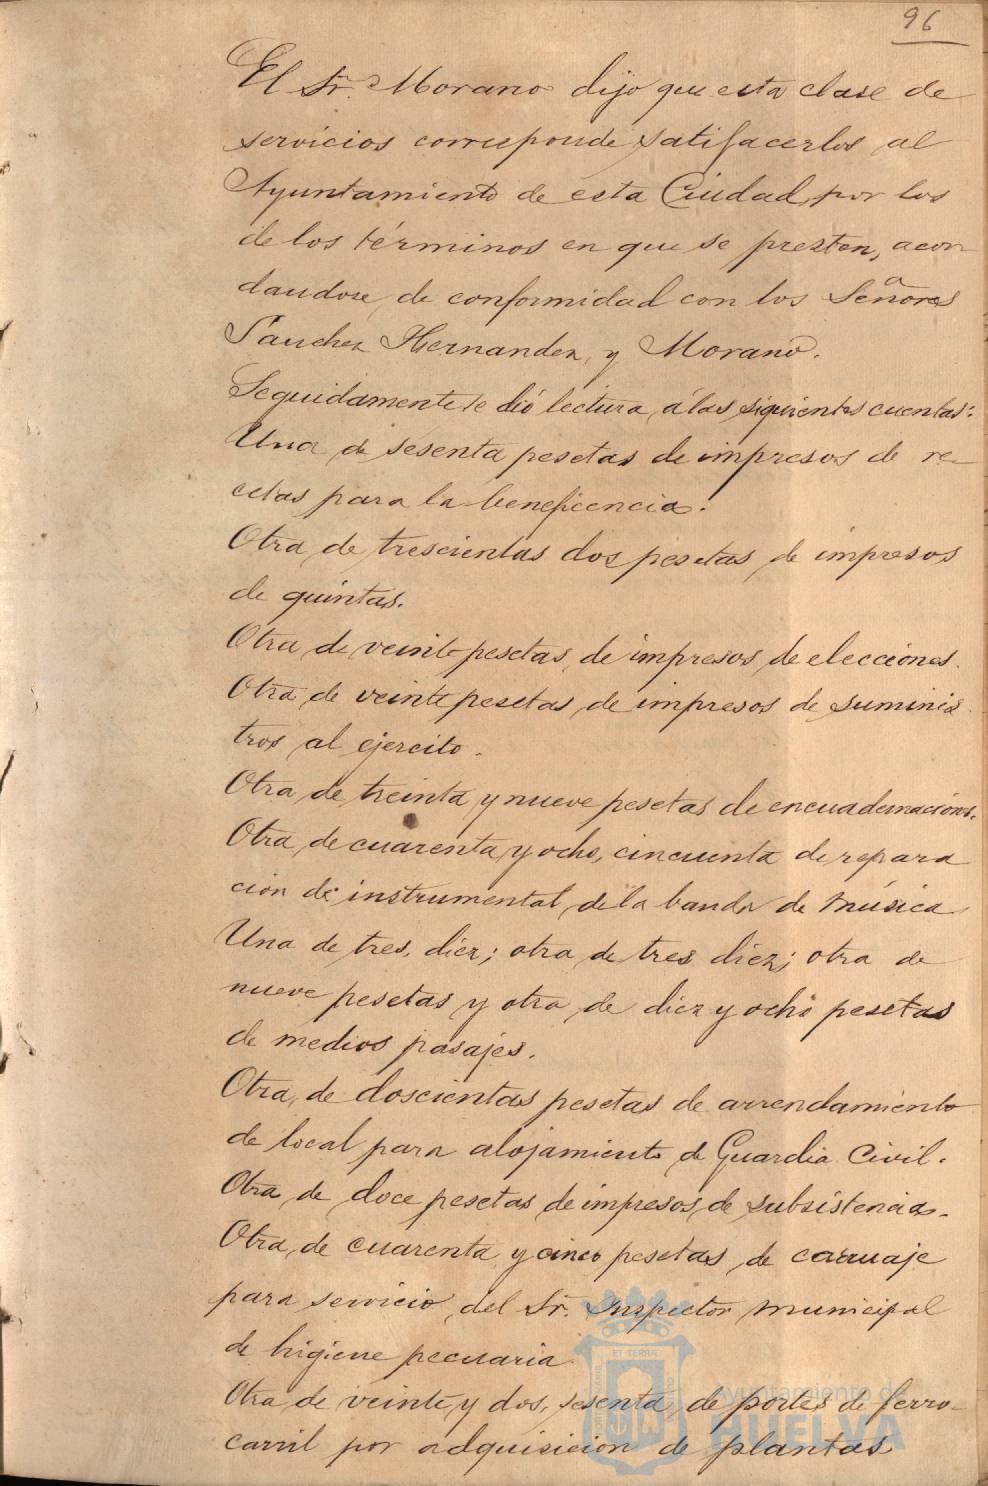 96
El Sr. Morano dijo que esta clase de
servicios corresponde satifacerlos al
Ayuntamiento de esta Ciudad, por los
de los términos en que se presten, acor
dandose, de conformidad con los Señores
Sanchez Hernandez, y Morano.
Seguidamente se dió lectura á las siguientes cuentas:
Una de sesenta pesetas de impresos de re-
cetas para la beneficencia.
Otra de trescientas dos pesetas de impresos
de quintas.
Otra de veinte pesetas de impresos de elecciones.
Otra de veinte pesetas de impresos de suminis
tros al ejercito.
Otra de treinta y nueve pesetas de encuadernacións.
Otra de cuarenta y ocho, cincuenta de repara
ción de instrumental de la banda de música
Una de tres, diez; otra de tres diez; otra de
nueve pesetas y otra de diez y ocho pesetas
de medios pasajes.
Otra de doscientas pesetas de arrendamiento
de local para alojamiento de Guardia Civil.
Otra de doce pesetas de impresos de subsistencias.
Otra de cuarenta y cinco pesetas de carruaje
para servicio del Sr. Inspector municipal
de higiene pecuaria
Otra de veinte y dos, sesenta de portes de ferro-
carril por adquisición de plantas
ET TERRÆ
Ayuntamiento de
HUELVA